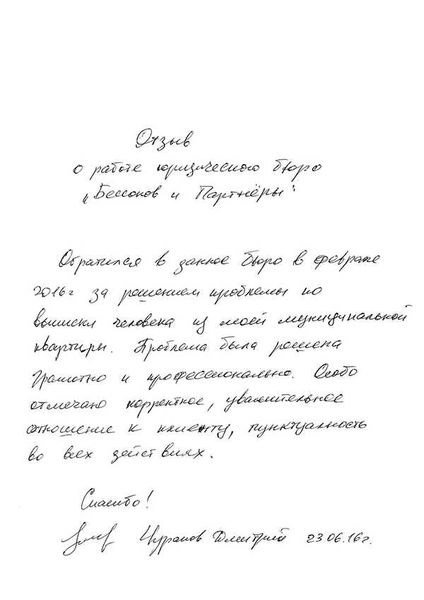 Отзыв
о работе юридического бюро
„Бессонов и Партнёры"
Обратился в данное бюро в феврале
2016г за решением проблемы по
выписки человека из моей муниципальной
квартиры. Проблема была решена
грамотно и профессионально. Особо
отмечаю корректное, уважительное
отношение к клиенту, пунктуальность
во всех действиях.
Спасибо!
Дмитрий 23.06.16г.